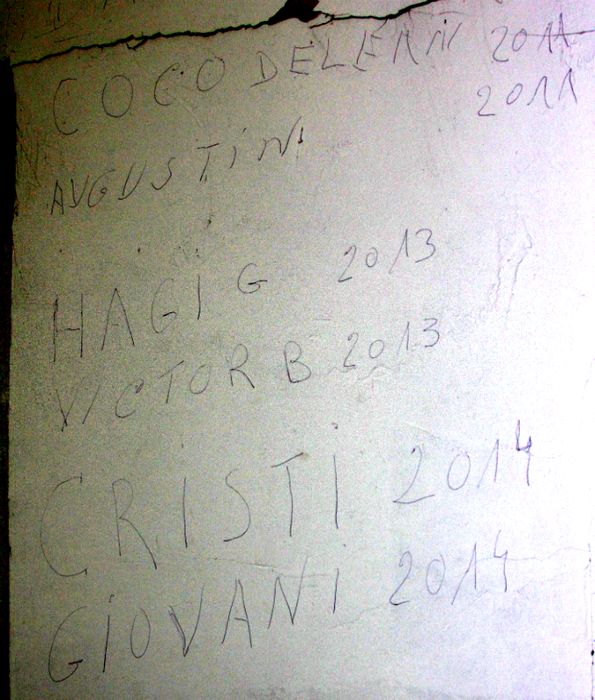 COCO DELERiN 2011
2011
AUGUSTiN
HAGi G 2013
ViCTOR B 2013
CRiSTi 2014
GiOVANi 2014